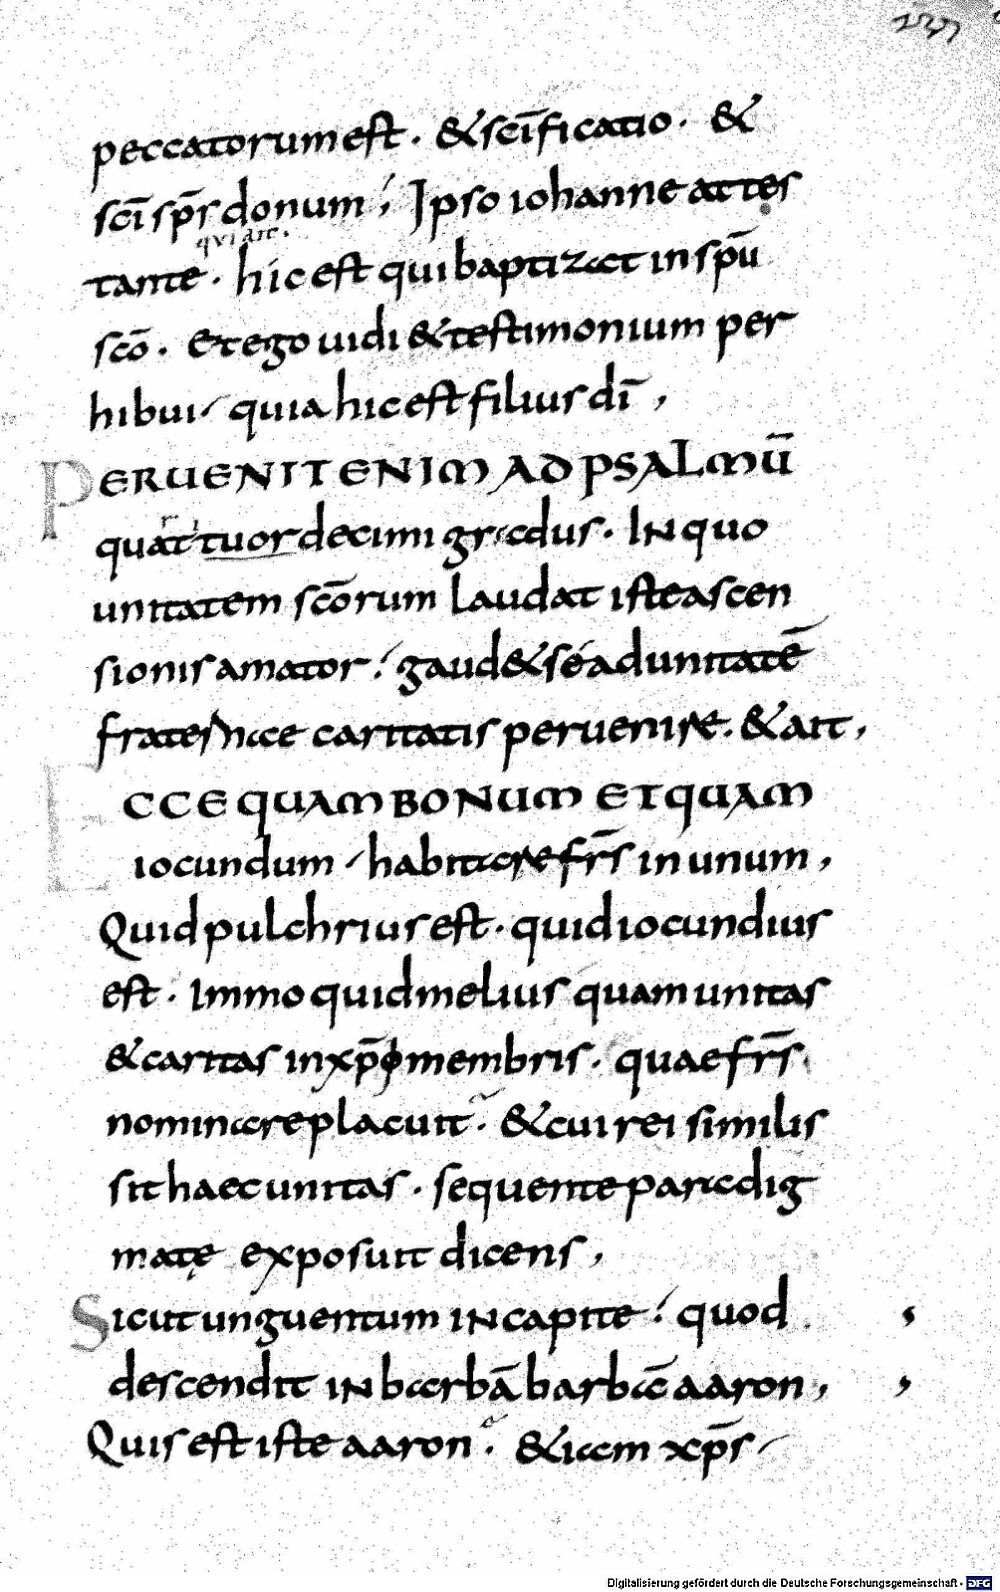 peccatorum est · & sc̄ificatio · &
sc̄i sp̄s donum ; Ipso iohanne attes
qui ait ·
tante · hic est qui baptizat in sp̄u
sc̄o · Et ego uidi & testimonium per
hibui quia hic est filius dī ,
PERUENIT ENIM AD PSALMŪ
quattuordecimi gradus · IN quo
unitatem sc̄orum laudat iste ascen
sionis amator ; gaud& sé ad unitatē
fraternae caritatis peruenire · & ait ,
ECCE QUAM BONUM ET QUAM
iocundum habitare fr̄s in unum ,
Quid pulchrius est · quid iocundius
est · Immo quid melius quam unitas
& caritas in xp̄o membris · quae fr̄s
nominare placuit · & cui rei similis
sit haec unitas · sequente paradig
matę exposuit dicens ,
Sicut unguentum IN capite ; quod
descendit IN barbā barbā aaron ,
Quis est iste aaron · &iam xp̄s
Digitalisierung gefördert durch die Deutsche Forschungsgemeinschaft - DFG